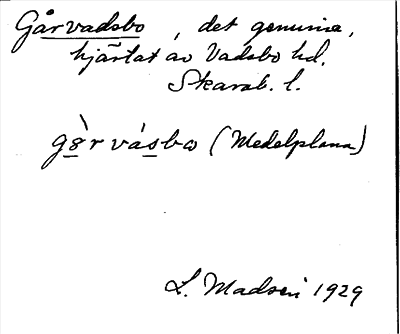 Gårvadsbo, det genuina,
hjärtat av Vadsbo hd.
Skarab. l.
gèr vásbω (Medelplana)
L. Madsén 1929